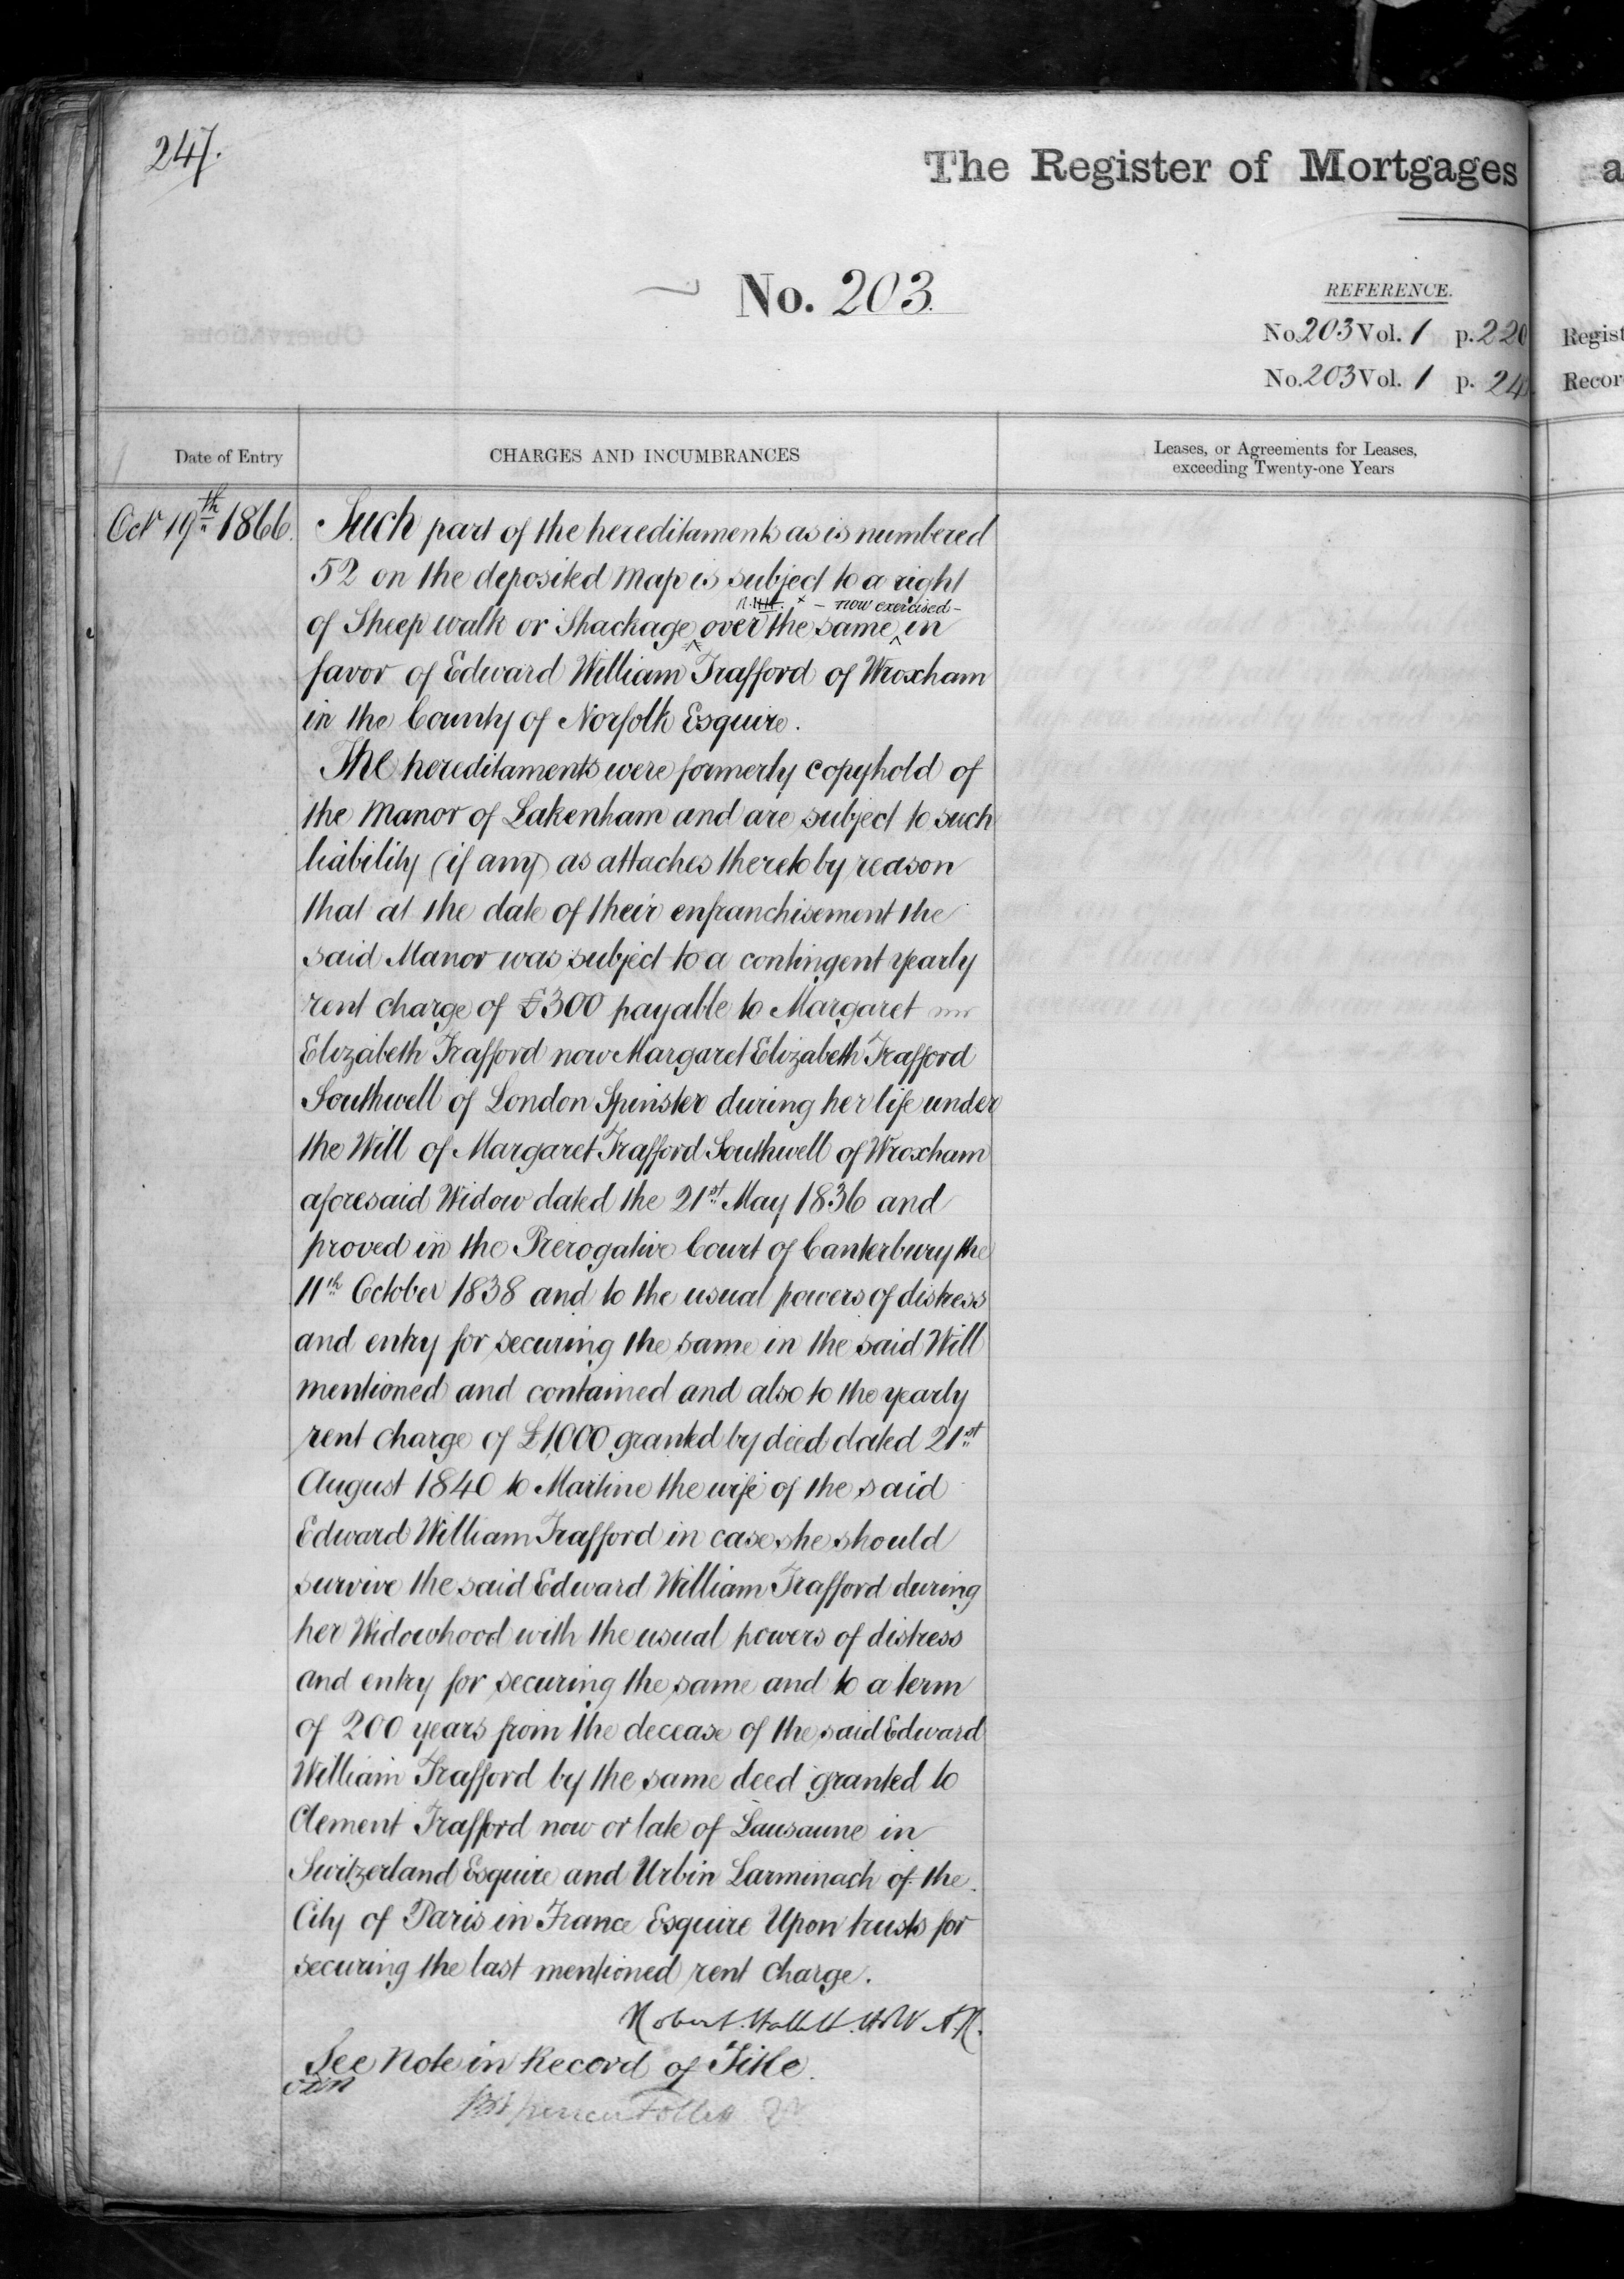 247.
The Register of Mortgages
a
No. 203.
REFERENCE.
No. 203 Vol. 1 p. 220
Regist
No. 203 Vol. 1 p. 24
Recor
Date of Entry
CHARGES AND INCUMBRANCES
Leases, or Agreements for Leases,
exceeding Twenty-one Years
Octr 19th 1866.
Such part of the hereditaments as is numbered
52 on the deposited Map is subject to a right
– now exercised –
of Sheep walk or Shackage over the same in
favor of Edward William Trafford of Wroxham
in the County of Norfolk Esquire.
The hereditaments were formerly copyhold of
the Manor of Lakenham and are subject to such
liability (if any) as attaches thereto by reason
that at the date of their enfranchisement the
said Manor was subject to a contingent yearly
rent charge of £300 payable to Margaret
Elizabeth Trafford now Margaret Elizabeth Trafford
Southwell of London Spinster during her life under
the Will of Margaret Trafford Southwell of Wroxham
aforesaid Widow dated the 21st May 1836 and
proved in the Prerogative Court of Canterbury the
11th October 1838 and to the usual powers of distress
and entry for securing the same in the said Will
mentioned and contained and also to the yearly
rent charge of £1,000 granted by deed dated 21st
August 1840 to Martine the wife of the said
Edward William Trafford in case she should
survive the said Edward William Trafford during
her Widowhood with the usual powers of distress
and entry for securing the same and to a term
of 200 years from the decease of the said Edward
William Trafford by the same deed granted to
Clement Trafford now or late of Lausaune in
Switzerland Esquire and Urbin Larminach of the
City of Paris in France Esquire Upon trusts for
securing the last mentioned rent charge.
Robert Hallett A.R.
See Note in Record of Title.